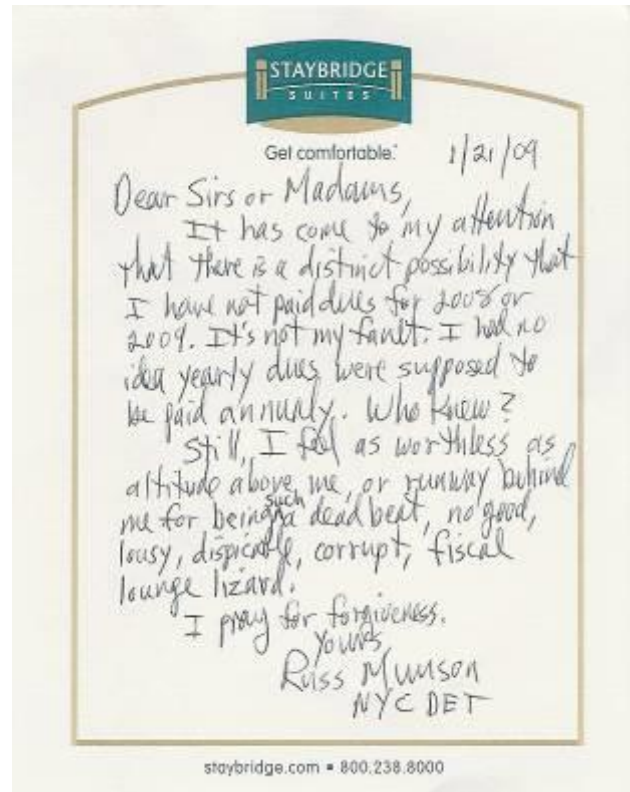 STAYBRIDGE
SUITES
Get comfortable.
1/21/09
Dear Sirs or Madams,
It has come to my attention
that there is a distinct possibility that
I have not paid dues for 2008 or
2009. It's not my fault. I had no
idea yearly dues were supposed to
be paid annualy. Who knew?
Still, I feel as worthless as
altitude above me, or runway behind
me for being such a dead beat, no good,
lousy, dispicable, corrupt, fiscal
lounge lizard.
I pray for forgiveness.
Yours
Russ Munson
NYC DET
staybridge.com ▪ 800.238.8000